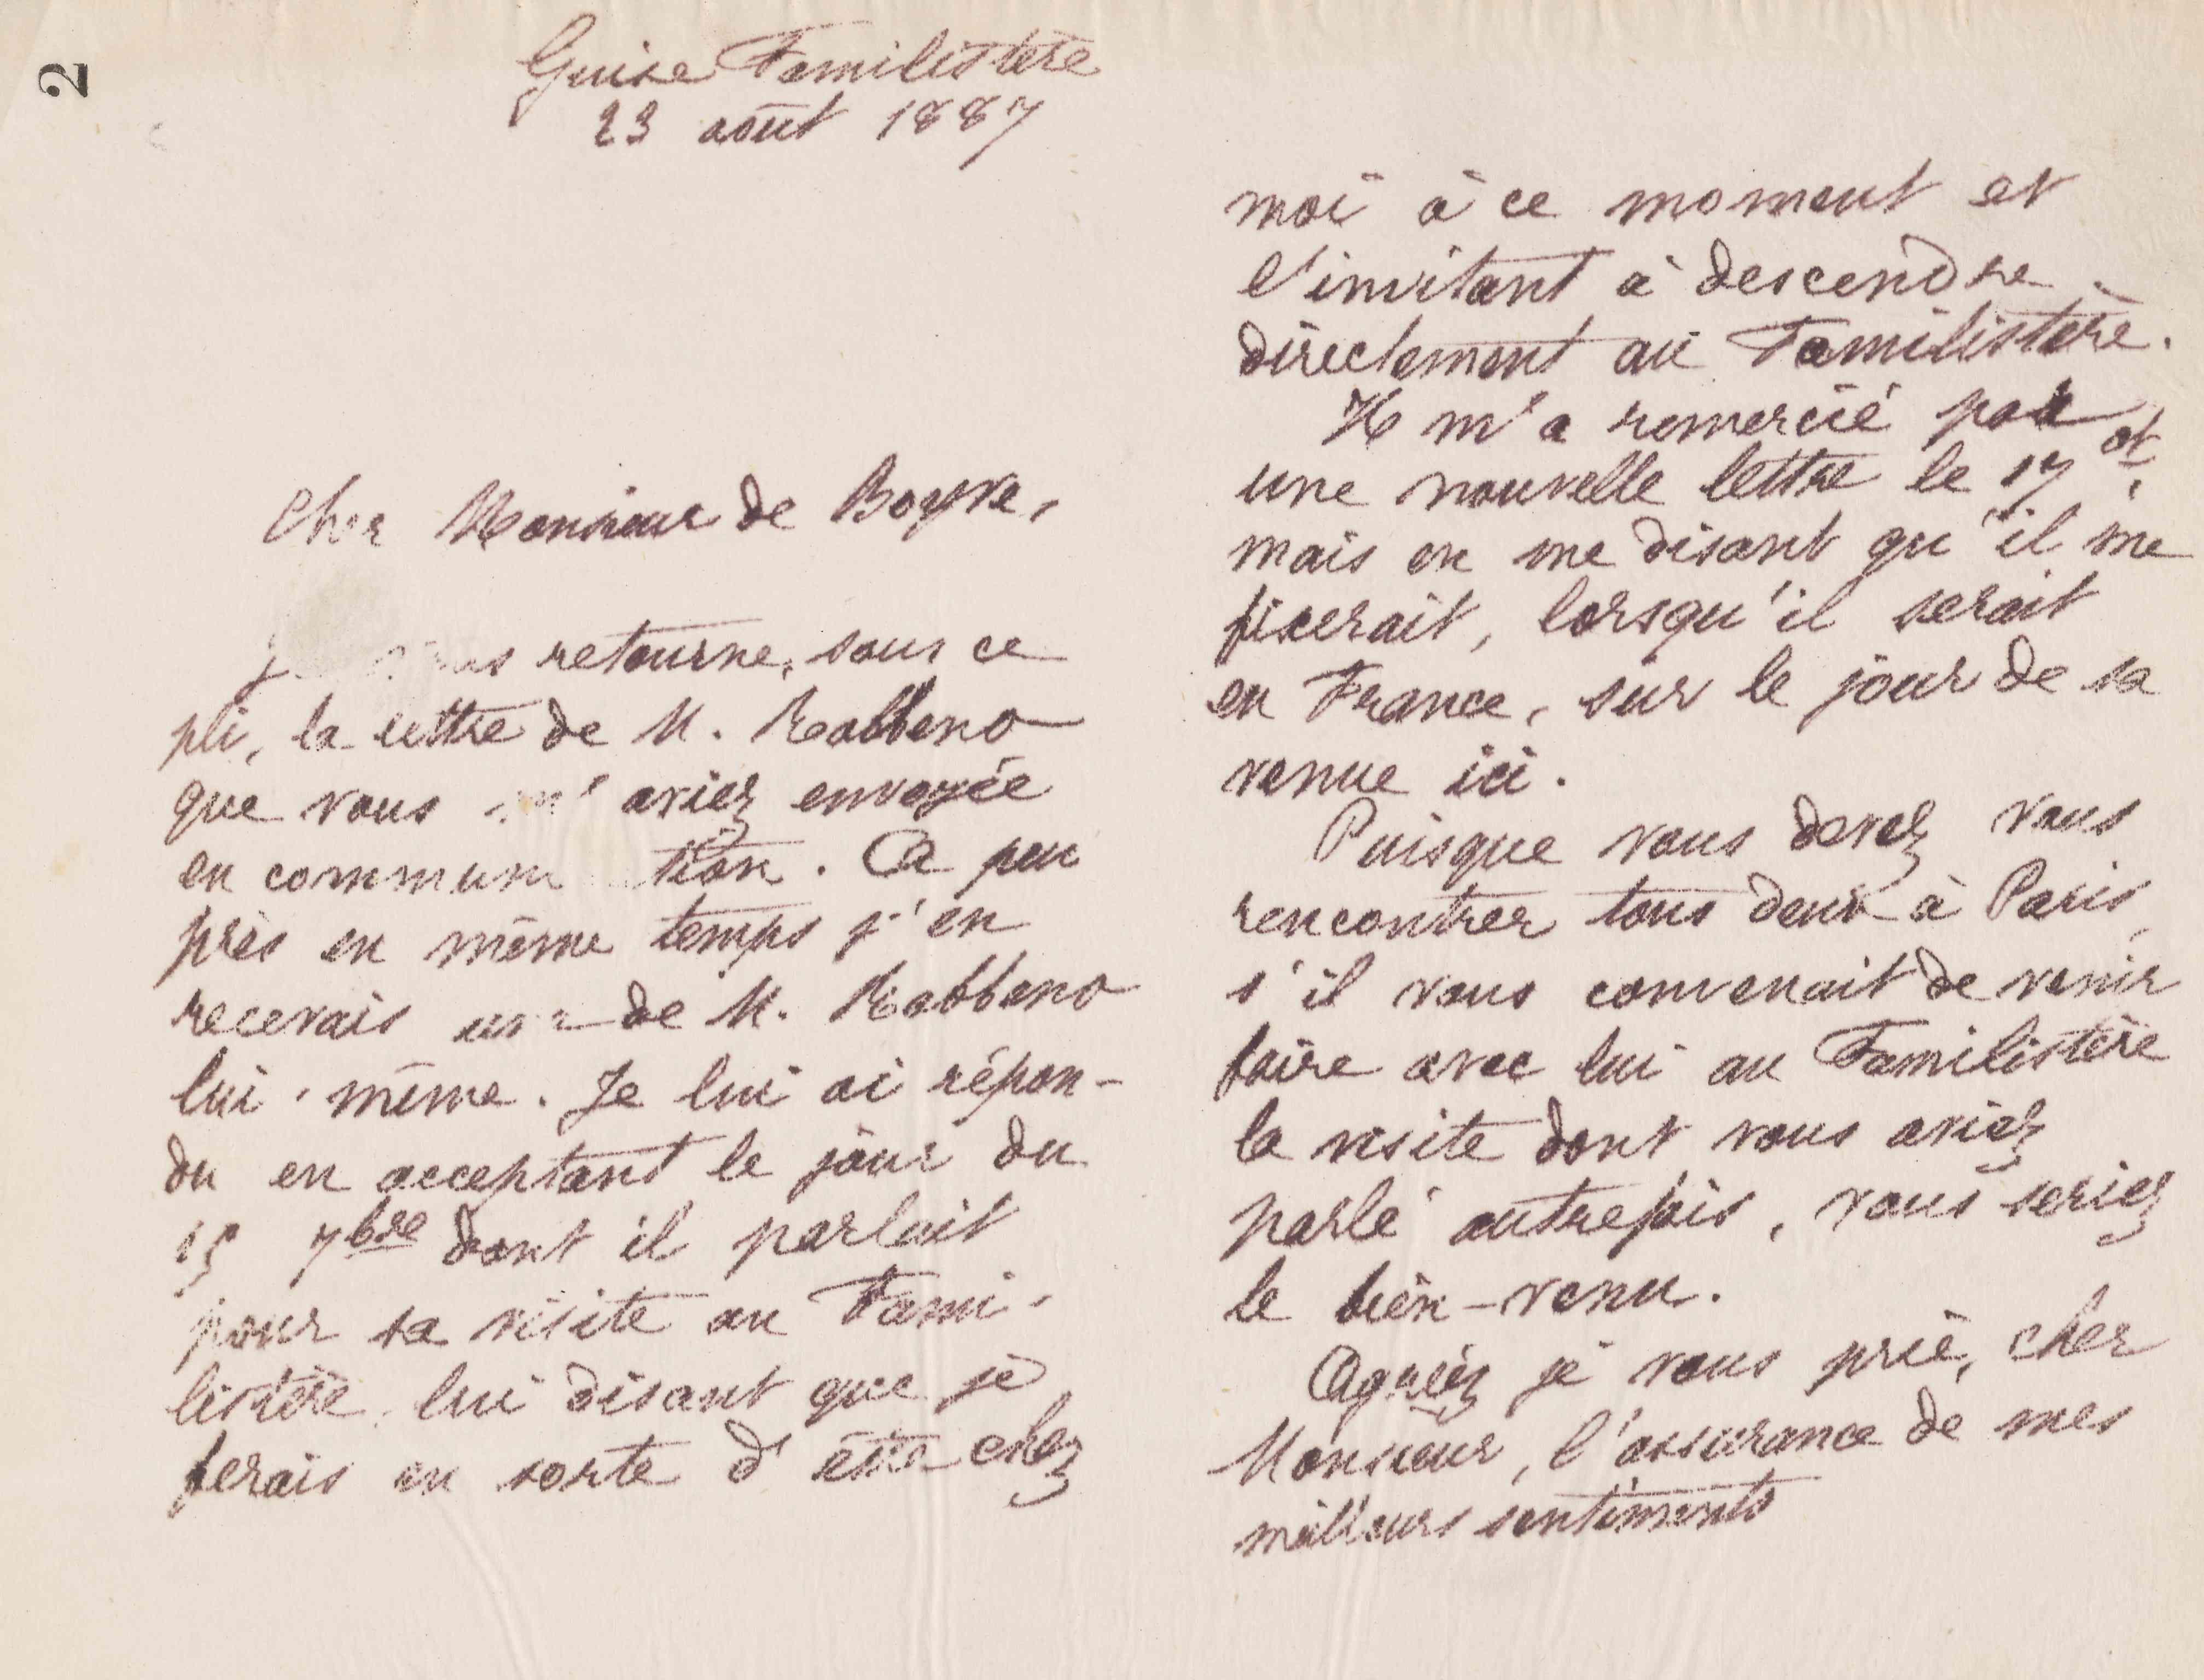 2
Guise Familistère
23 août 1887
Cher Monsieur de Boyve,
vous retourne, sous ce
pli, la lettre de M. Rabbeno
que vous m'aviez envoyée
en communication. A peu
près en même temps j'en
recevais une de M. Rabbeno
lui-même. Je lui ai répon-
du en acceptant le jour du
15 7bre dont il parlait
pour sa visite au Fami-
listère, lui disant que je
ferais en sorte d'être chez
moi à ce moment et
l'invitant à descendre
directement au Familistère.
Il m'a remercié par
une nouvelle lettre le 17 ct,
mais en me disant qu'il me
fixerait, lorsqu'il serait
en France, sur le jour de sa
venue ici.
Puisque vous devez vous
rencontrer tous deux à Paris,
s'il vous convenait de venir
faire avec lui au Familistère
la visite dont vous aviez
parlé autrefois, vous seriez
le bien-venu.
Agréez je vous prie, cher
Monsieur, l'assurance de mes
meilleurs sentiments